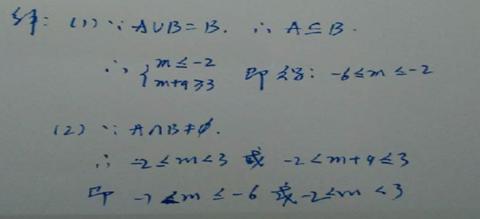 解:(1)∵A∪B=B. ∴A⊆B.
∴{m≤-2
m+9≥3 即得:-6≤m≤-2
(2)∵A∩B≠∅.
∴-2≤m<3 或 -2<m+9≤3
即 m≤-6 或-2≤m<3